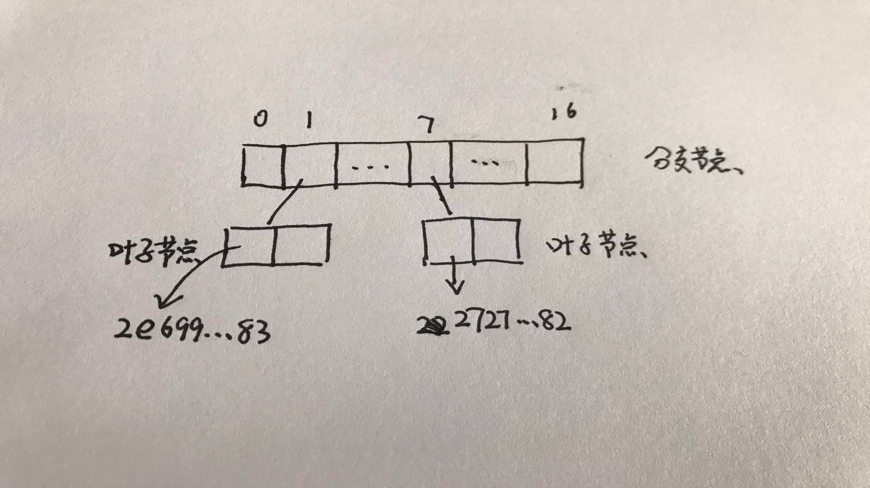 0 1 7 16
... ...
分支节点、
叶子节点
叶子节点、
2e699...83
2727...82